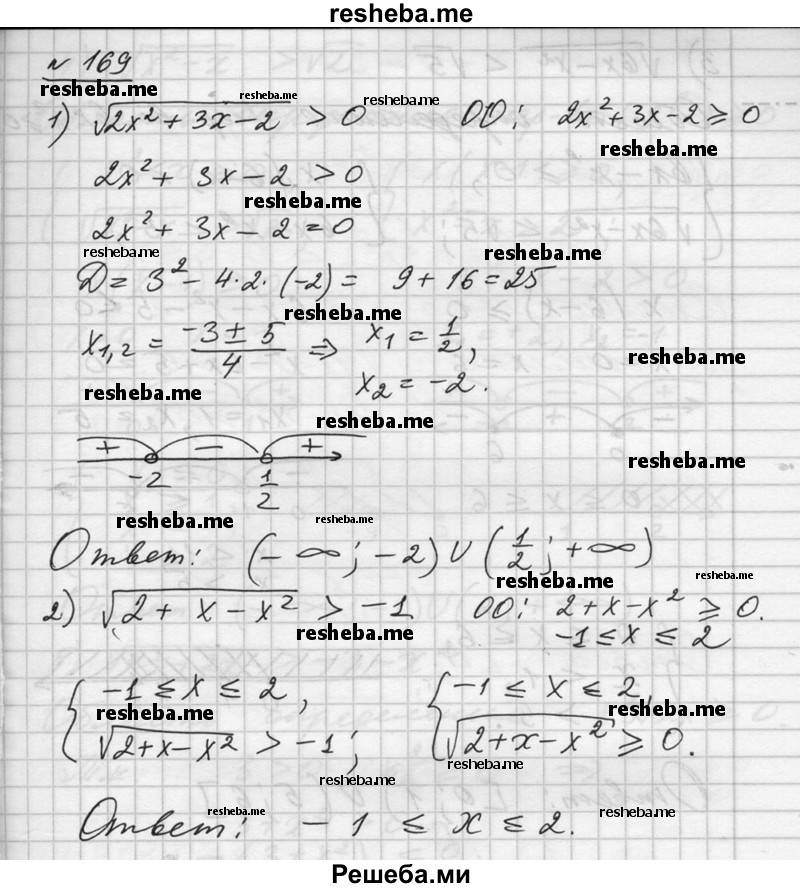 resheba.me
№ 169
resheba.me
1) √(2x² + 3x − 2) > 0 ОО: 2x² + 3x − 2 ≥ 0
resheba.me resheba.me
resheba.me
2x² + 3x − 2 > 0
resheba.me
2x² + 3x − 2 = 0
resheba.me resheba.me
D = 3² − 4·2·(−2) = 9 + 16 = 25
resheba.me
x₁,₂ = (−3 ± 5)/4 ⇒ x₁ = 1/2,
resheba.me
x₂ = −2.
resheba.me
resheba.me
+ − +
resheba.me
−2 1/2
resheba.me resheba.me
Ответ: (−∞; −2) ∪ (1/2; +∞)
resheba.me resheba.me
2) √(2 + x − x²) > −1 ОО: 2 + x − x² ≥ 0.
resheba.me
−1 ≤ x ≤ 2
{ −1 ≤ x ≤ 2, { −1 ≤ x ≤ 2,
resheba.me resheba.me
√(2 + x − x²) > −1; √(2 + x − x²) ≥ 0.
resheba.me resheba.me
resheba.me resheba.me
Ответ: −1 ≤ x ≤ 2.
Решеба.ми